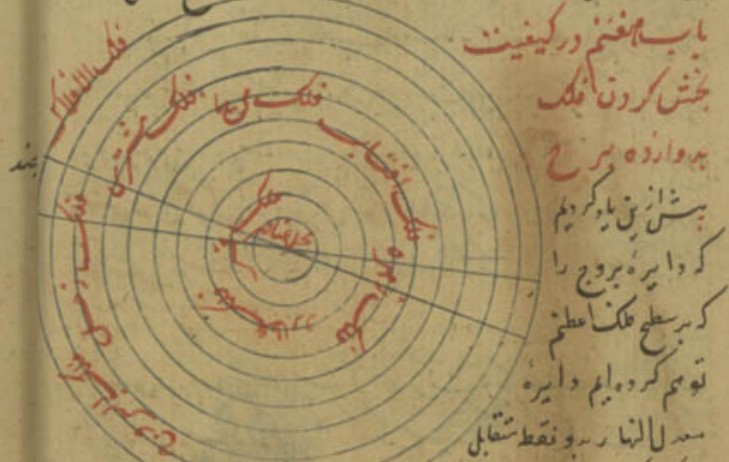 باب هفتم در کیفیت
بخش کردن فلک
بدوازده برج
پیش ازین یاد کردیم
که دایرهٔ بروج را
که بر سطح فلک اعظم
توهم کرده ایم دایرهٔ
معدل النهار بدو نقطه متقابل
فلک الافلاک
فلک البروج
فلک زحل
فلک مشتری
فلک
فلک آفتاب
فلک زهره
فلک عطارد
فلک